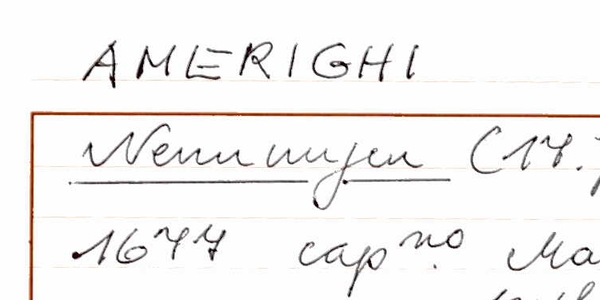 AMERIGHI
Nenningen (17.
1677 cap.no Ma